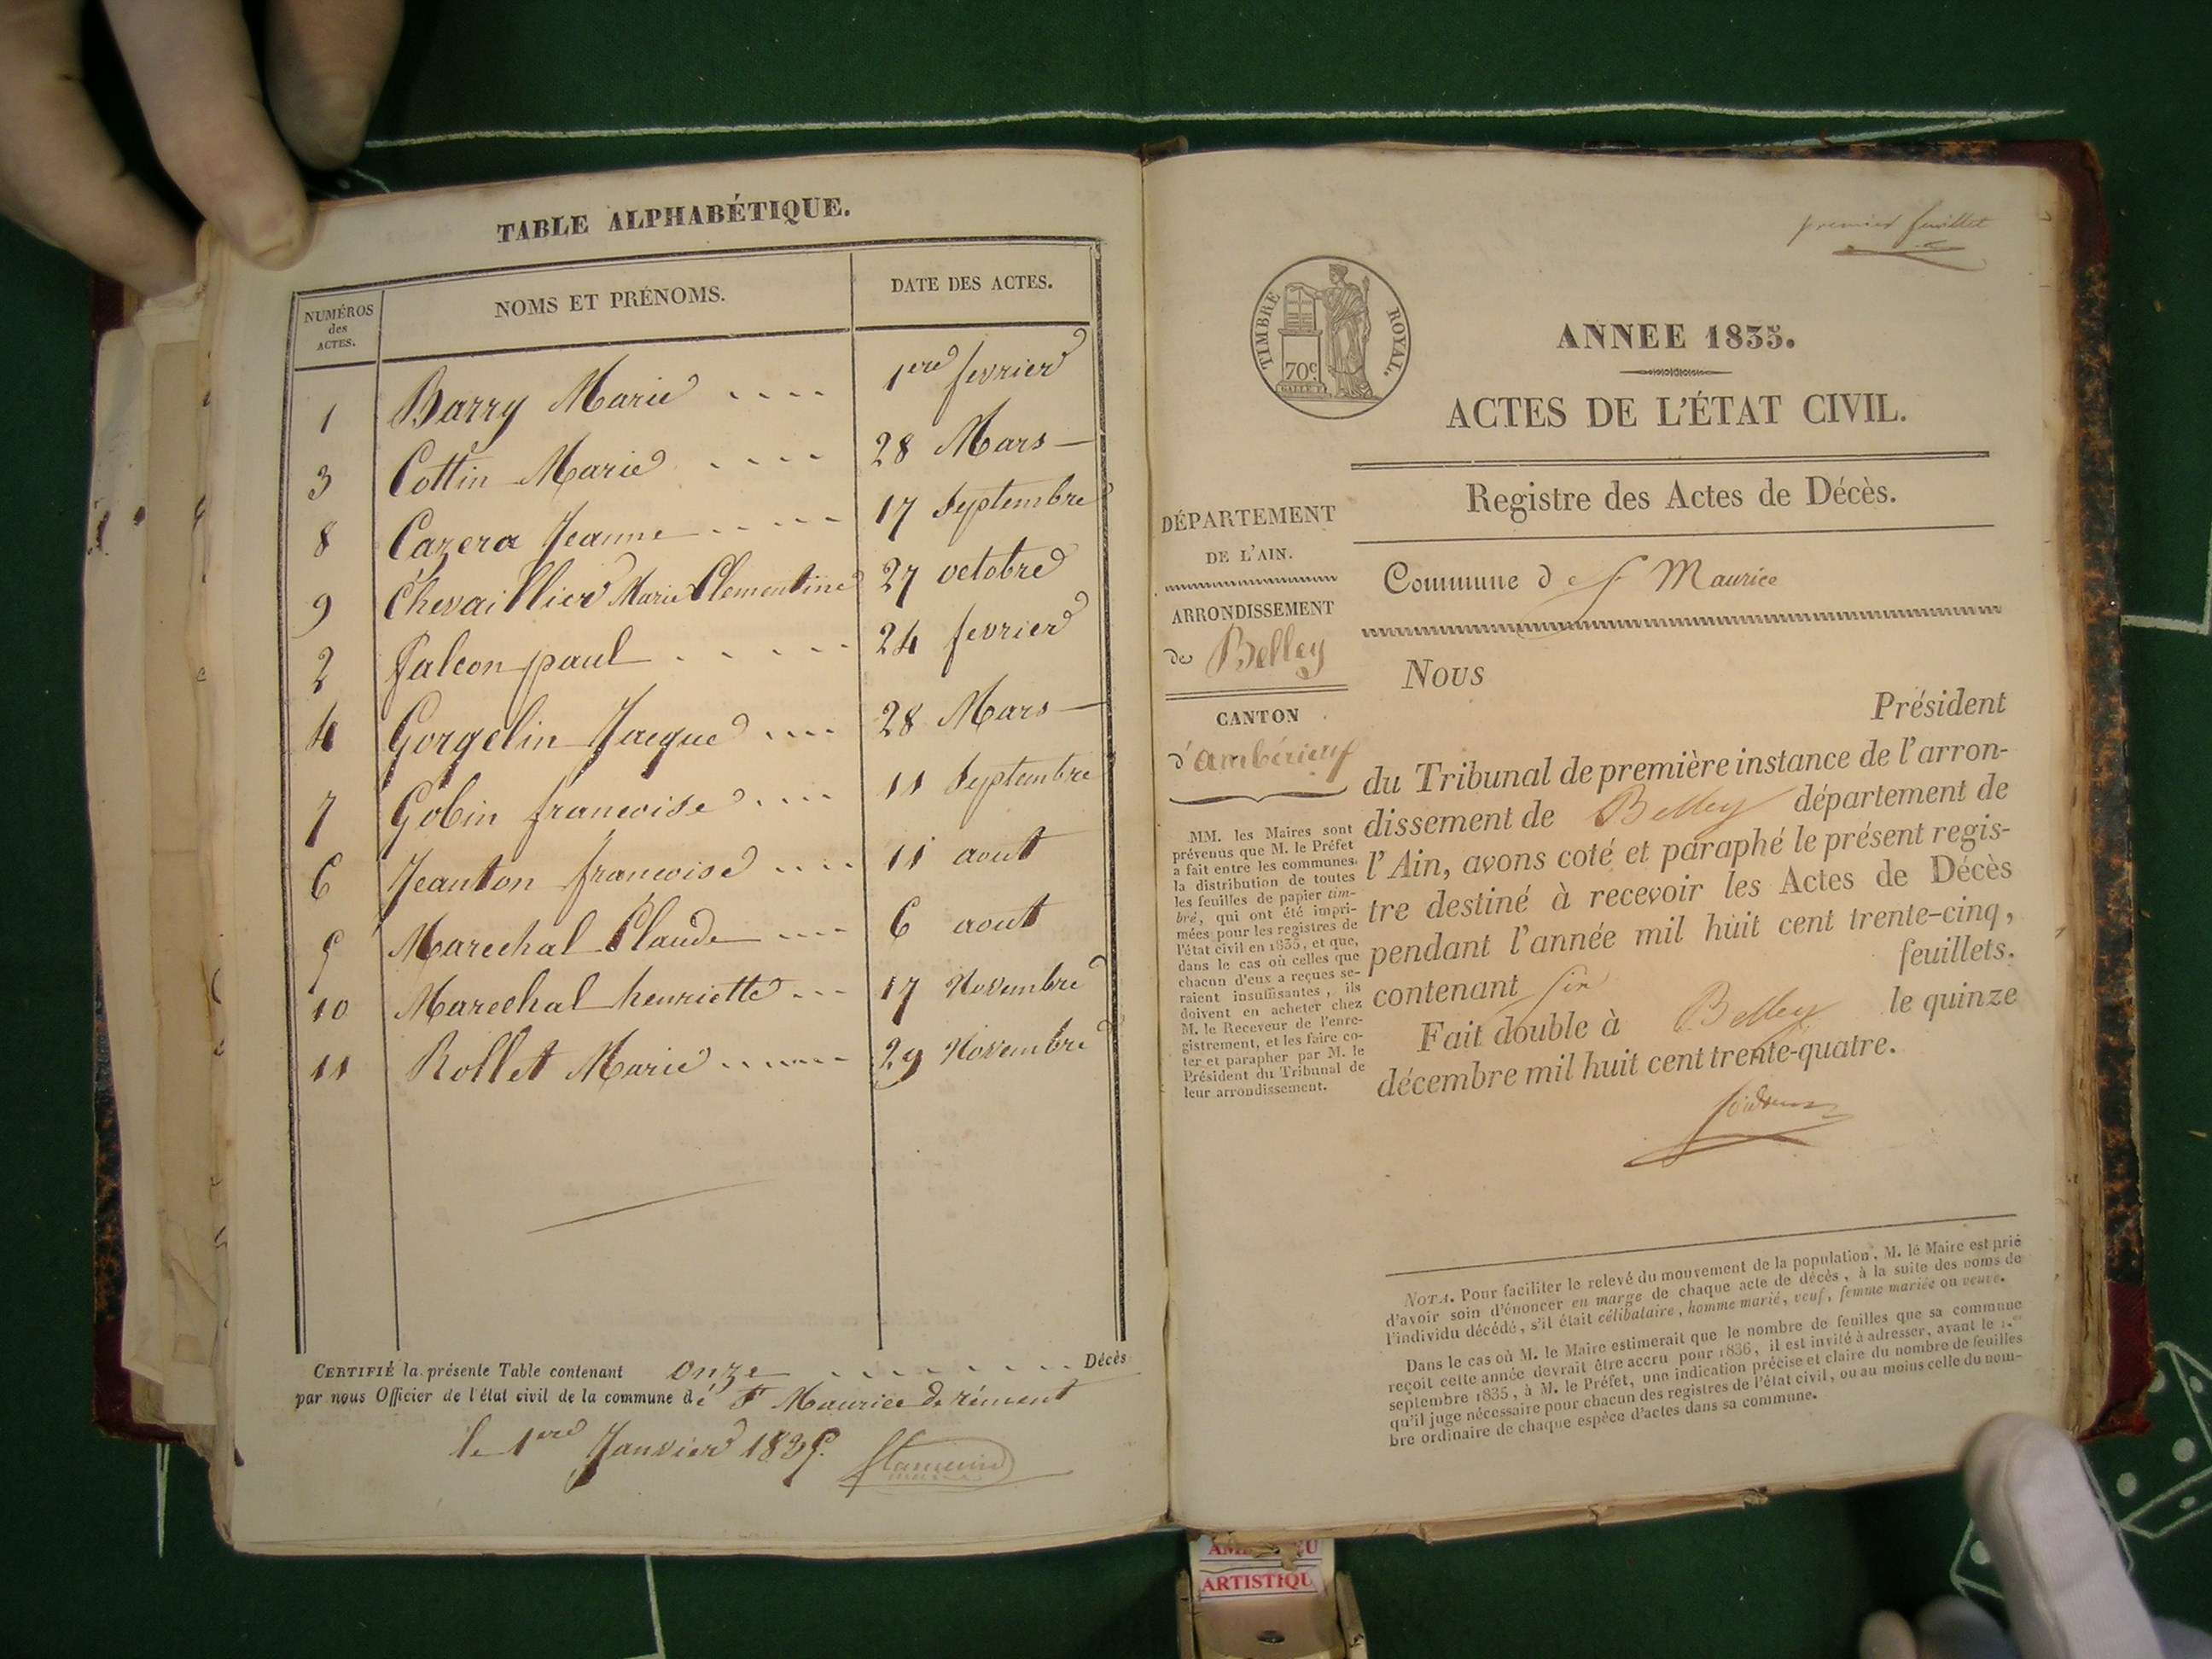 TABLE ALPHABÉTIQUE.
NUMÉROS des ACTES. NOMS ET PRÉNOMS. DATE DES ACTES.
1 Barry Marie .... 1ere fevrier
3 Cottin Marie .... 28 Mars —
8 Cazera Jeanne ..... 17 Septembre
9 Chevaillier Marie Clementine 27 octobre
2 falcon paul ..... 24 fevrier
4 Gorgelin Jacque .... 28 Mars —
7 Gobin francoise .... 11 Septembre
6 Jeanton francoise .... 11 aout
5 Marechal Claude .... 6 aout
10 Marechal henriette ... 17 Novembre
11 Rollet Marie ...... 29 Novembre
CERTIFIÉ la présente Table contenant onze ....... Décès
par nous Officier de l'état civil de la commune de St Maurice de rément
le 1ere Janvier 1835.
premier feuillet
TIMBRE ROYAL.
70c
ANNEE 1835.
ACTES DE L'ÉTAT CIVIL.
Registre des Actes de Décès.
DÉPARTEMENT
DE L'AIN.
ARRONDISSEMENT
de Belley
CANTON
d'ambérieuf
MM. les Maires sont
prévenus que M. le Préfet
a fait entre les communes
la distribution de toutes
les feuilles de papier tim-
bré, qui ont été impri-
mées pour les registres de
l'état civil en 1835, et que,
dans le cas où celles que
chacun d'eux a reçues se-
raient insuffisantes, ils
doivent en acheter chez
M. le Receveur de l'enre-
gistrement, et les faire co-
ter et parapher par M. le
Président du Tribunal de
leur arrondissement.
Commune de St Maurice
Nous
Président
du Tribunal de première instance de l'arron-
dissement de Belley département de
l'Ain, avons coté et paraphé le présent regis-
tre destiné à recevoir les Actes de Décès
pendant l'année mil huit cent trente-cinq,
contenant six feuillets.
Fait double à Belley le quinze
décembre mil huit cent trente-quatre.
NOTA. Pour faciliter le relevé du mouvement de la population, M. le Maire est prié
d'avoir soin d'énoncer en marge de chaque acte de décès, à la suite des noms de
l'individu décédé, s'il était célibataire, homme marié, veuf, femme mariée ou veuve.
Dans le cas où M. le Maire estimerait que le nombre de feuilles que sa commune
reçoit cette année devrait être accru pour 1836, il est invité à adresser, avant le 1.er
septembre 1835, à M. le Préfet, une indication précise et claire du nombre de feuilles
qu'il juge nécessaire pour chacun des registres de l'état civil, ou au moins celle du nom-
bre ordinaire de chaque espèce d'actes dans sa commune.
ARTISTIQU